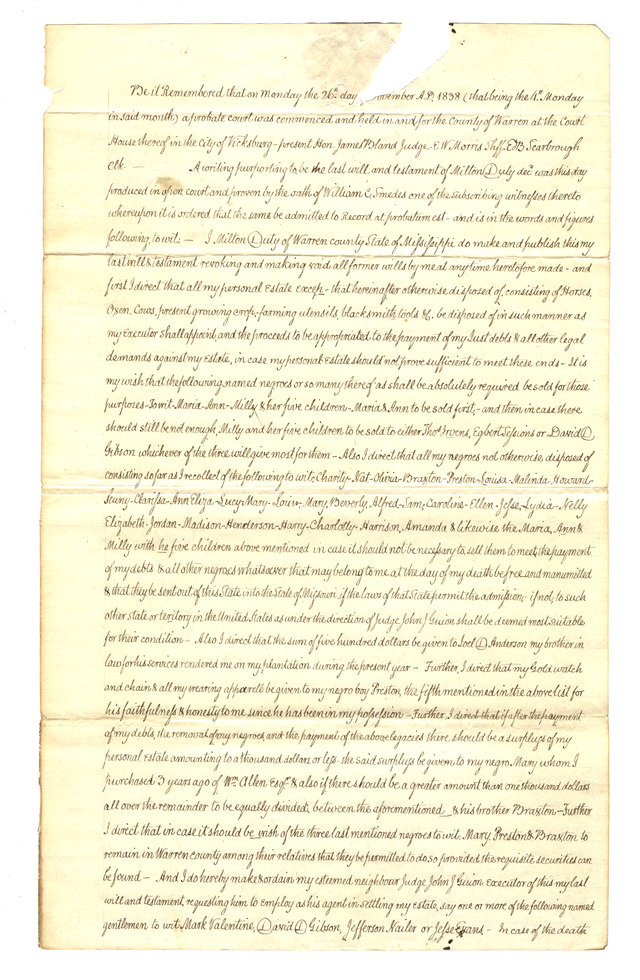 Be it Remembered that on Monday the 26th day November A.D. 1838 (that being the 4th Monday
in said month) a probate court was commenced and held in and for the County of Warren at the Court
House thereof in the City of Vicksburg - present Hon. James Bland Judge, E W Morris Shff. E B Scarbrough
clk. — A writing purporting to be the last will and testament of Milton Duty decd was this day
produced in open court and proven by the oath of William C. Smedes one of the Subscribing witnesses thereto
whereupon it is ordered that the same be admitted to Record as probatum est - and is in the words and figures
following, to wit; — I Milton Duty of Warren county State of Mississippi do make and publish this my
last will & testament revoking and making void all former wills by me at any time heretofore made - and
first I direct that all my personal Estate except - that hereinafter otherwise disposed of, consisting of Horses,
Oxen, Cows, present growing crop, farming utensils, blacksmith tools &c, be disposed of in such manner as
my Executor shall appoint, and the proceeds to be appropriated to the payment of my Just debts & all other legal
demands against my Estate, in case my personal Estate should not prove sufficient to meet these ends - It is
my wish that the following named negroes or so many thereof as shall be absolutely required be sold for those
purposes - Towit - Maria - Ann - Milly & her five children - Maria & Ann to be sold first, - and then in case there
should still be not enough, Milly and her five children to be sold to either Thos. Irvens, Egbert Sessions or David D
Gibson whichever of the three will give most for them - Also I direct that all my negroes not otherwise disposed of
consisting so far as I recollect of the following to wit; Charity - Nat - Olivia - Braxton - Preston - Louisa - Malinda - Howard -
Seuny - Clarissa - Ann Eliza - Lucy - Mary - Louis - Mary, Beverly, Alfred - Sam, Caroline - Ellen - Jesse, Lydia - Nelly
Elizabeth - Jordan - Madison - Henderson - Harry - Charlotty - Harrison, Amanda & likewise the Maria, Ann &
Milly with he five children above mentioned in case it should not be necessary to sell them to meet the payment
of my debts & all other negroes whatsoever that may belong to me at the day of my death be free and manumitted
& that they be sent out of this State into the State of Missouri, if the laws of that State permit the admission; - if not, to such
other state or teritory in the United States as under the direction of Judge John J Guion shall be deemed most suitable
for their condition - Also I direct that the sum of five hundred dollars be given to Joel D Anderson my brother in
law for his services rendered me on my plantation during the present year - Further, I direct that my Gold watch
and chain & all my wearing apparele be given to my negro boy Preston, the fifth mentioned in the above list for
his faithfulness & honesty to me since he has been in my possession - Further, I direct that if after the payment
of my debts, the removal of my negroes, and the payment of the above legacies there should be a surplus of my
personal Estate amounting to a thousand dollars or less the said surplus be given to my negro Mary whom I
purchased 3 years ago of Wm Allen Esqr & also if there should be a greater amount than one thousand dollars
all over the remainder to be equally divided between the aforementioned & his brother Braxton - Further
I direct that in case it should be wish of the three last mentioned negroes to wit, Mary, Preston & Braxton to
remain in Warren county among their relatives that they be permitted to do so provided the requisite securities can
be found - And I do hereby make & ordain my esteemed neighbour Judge John J Guion Executor of this my last
will and testament, requesting him to Employ as his agent in settling my Estate, say one or more of the following named
gentlemen to wit Mark Valentine, David D Gibson, Jefferson Nailer or Jesse Evans - In case of the death